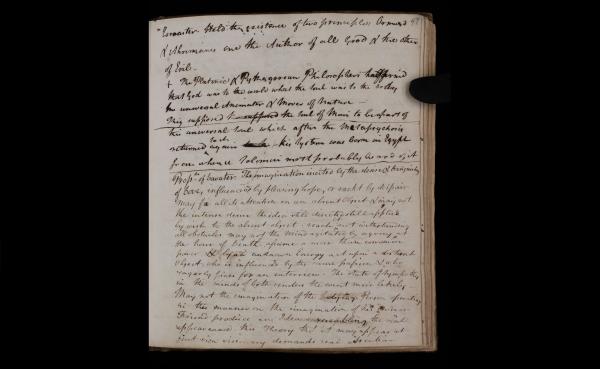 Zoroaster Held the existence of two principles Ormuzd 47
& Ahrimanes one the Author of all Good & the other
of Evil.
+ The Platonic & Pythagorean Philosophers
that God was to the world what the soul was to the body
the universal Animator & Mover of Nature —
They supposed the soul of Man to be a part of
the universal Soul which after the Metempsychosis
returned again his System was born in Egypt
from whence Solomon most probably
of Lavater. The imagination incited by the desire &
of Love, influenced by pleasing hope, or rackt by despair
May fix all its attention on an absent Object & may not
the intense desire
by wish to the absent object
all obstacles may not the Mind agitated by agony at
the hour of Death assume a more than
power & by an unknown Energy act upon a distant
object, who is influenced by the same passion &
for an interview. The state of Sympathy
in the minds of both renders the event more likely.
May not the imagination of the Person
in this manner on the imagination of his
Friend produce an Idea resembling the real
appearance. this Theory tho' it may appear at
first view visionary demands